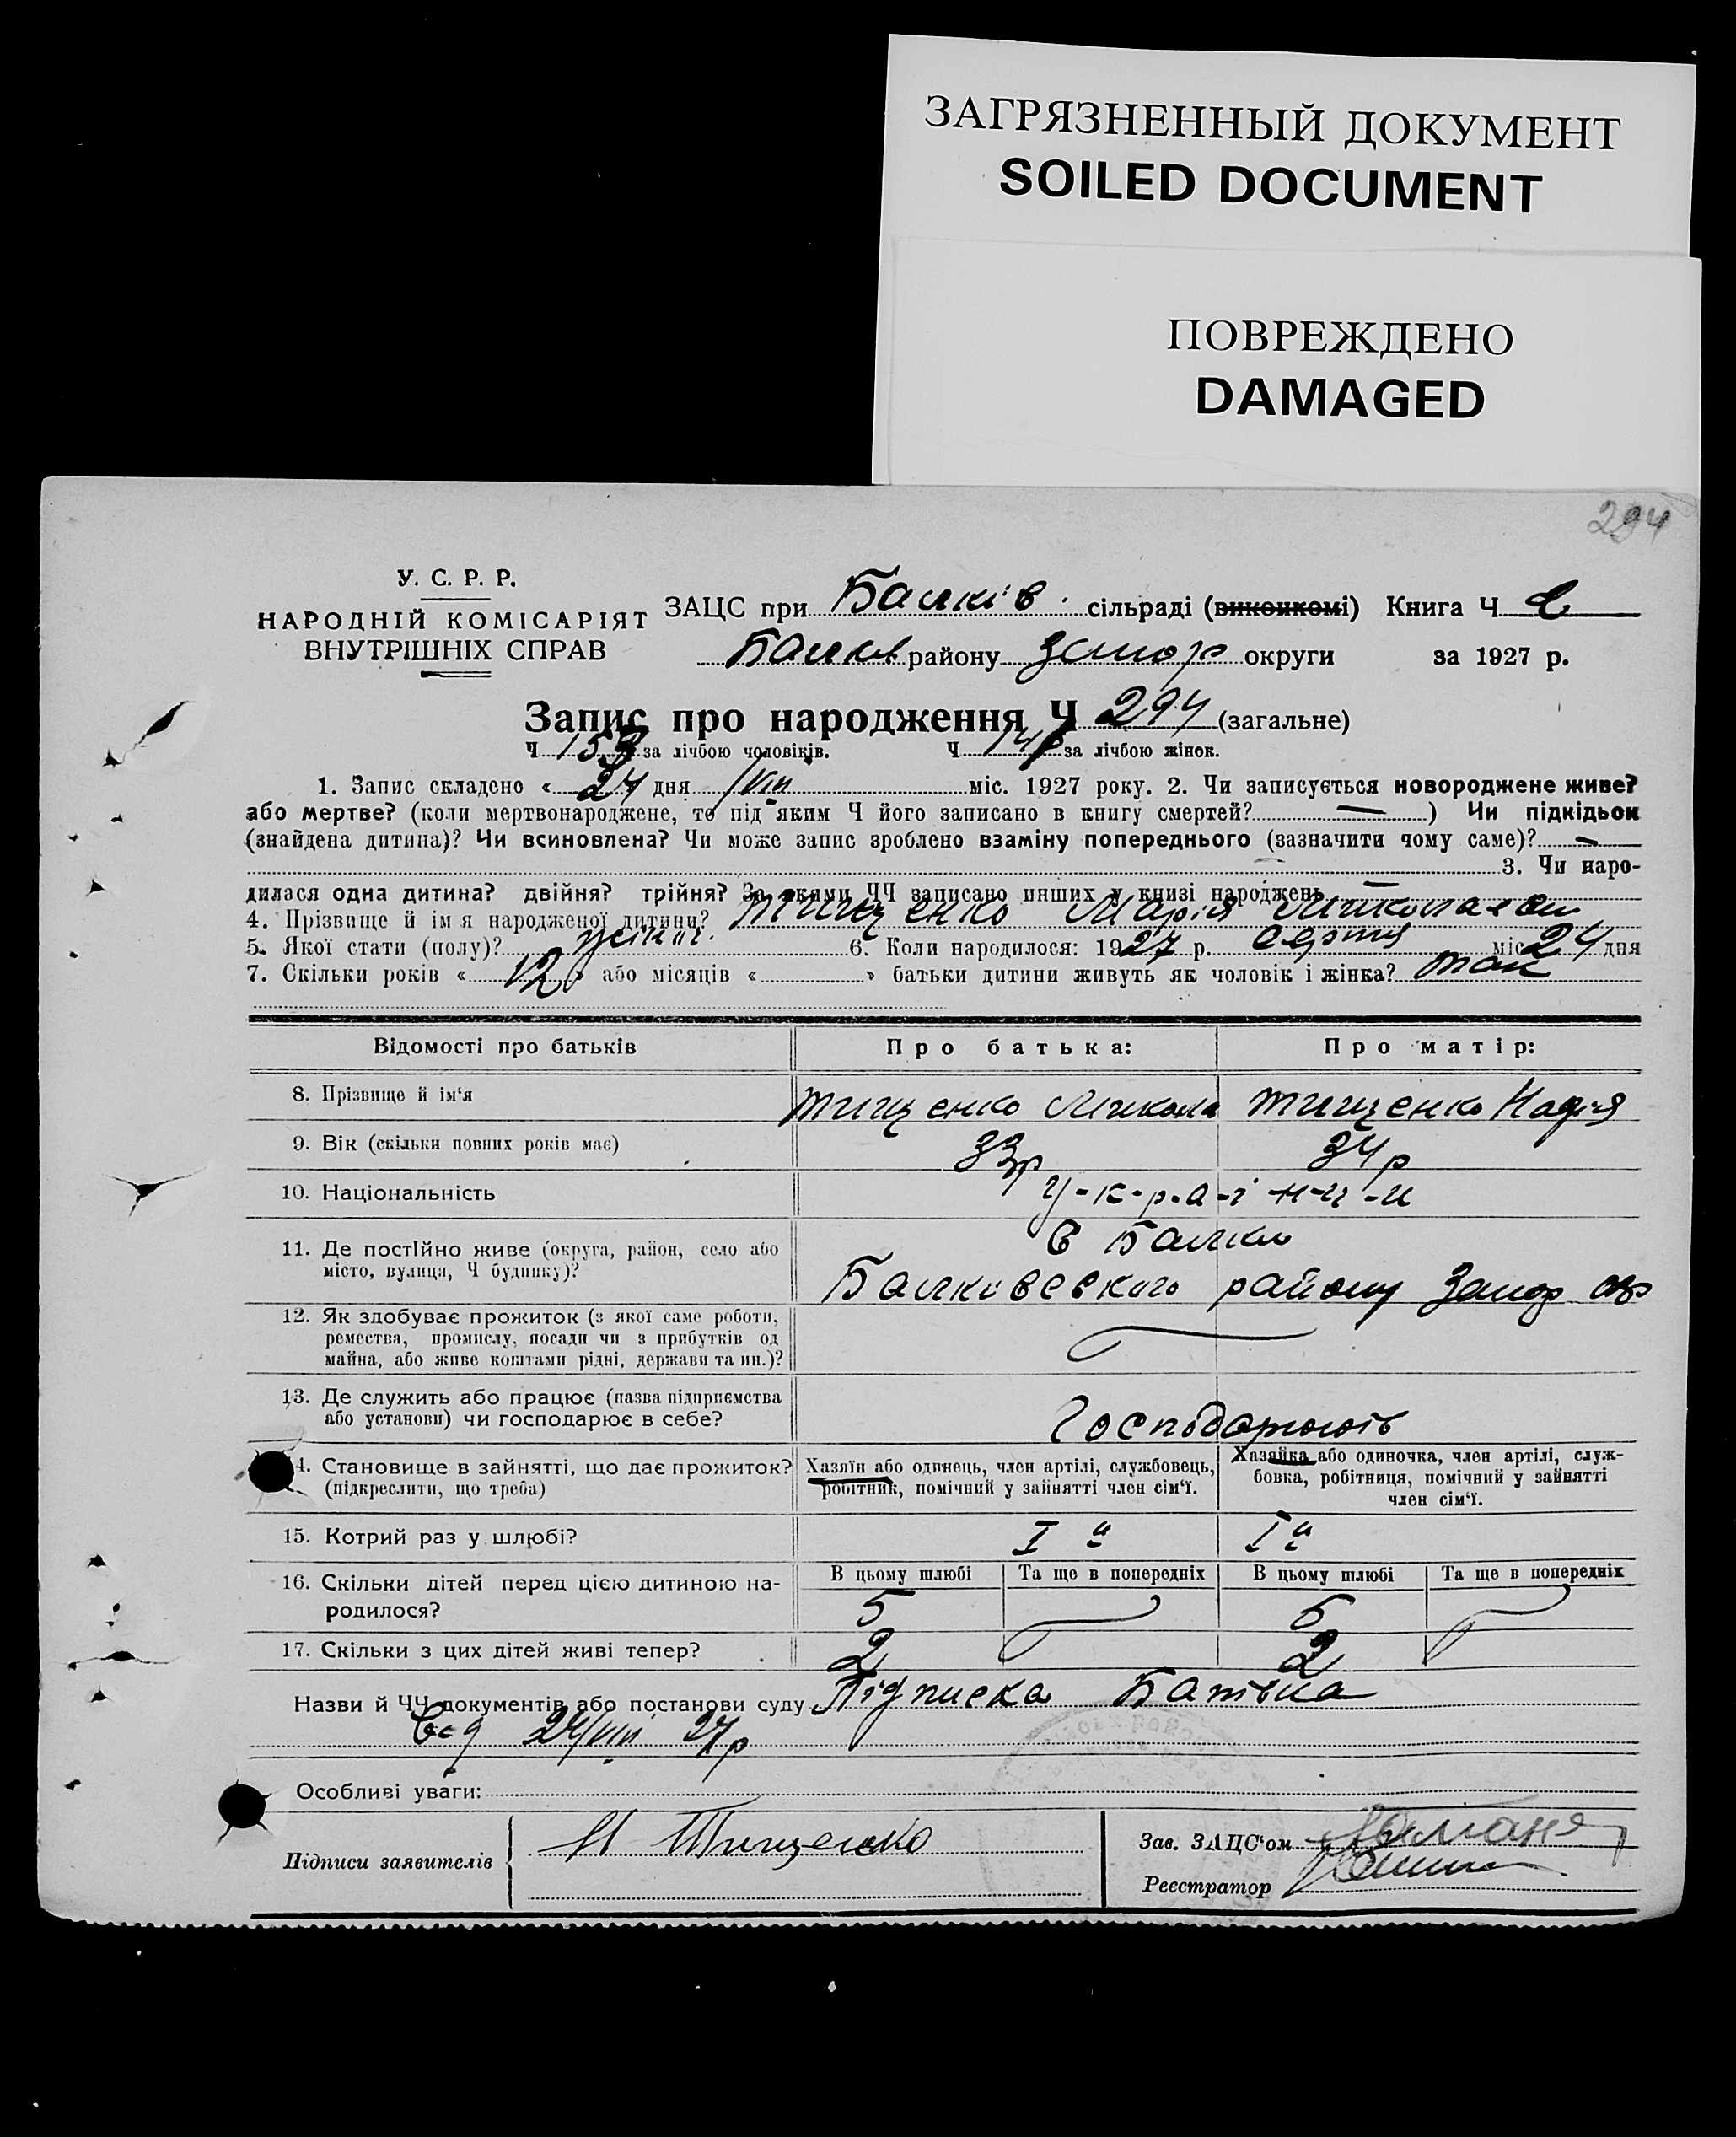 ЗАГРЯЗНЕННЫЙ ДОКУМЕНТ
SOILED DOCUMENT
ПОВРЕЖДЕНО
DAMAGED
294
У. С. Р. Р.
НАРОДНІЙ КОМІСАРІЯТ
ВНУТРІШНІХ СПРАВ
ЗАЦС при Балків. сільраді (виконкомі) Книга Ч
Балків району Запор округи за 1927 р.
Запис про народження Ч 294 (загальне)
Ч 153 за лічбою чоловіків. Ч 141 за лічбою жінок.
1. Запис складено « 24 дня VIII міс. 1927 року. 2. Чи записується новороджене живе?
або мертве? (коли мертвонароджене, то під яким Ч його записано в книгу смертей? — ) Чи підкідьок
(знайдена дитина)? Чи всиновлена? Чи може запис зроблено взаміну попереднього (зазначити чому саме)? —
3. Чи наро-
дилася одна дитина? двійня? трійня? За якими ЧЧ записано инших у книзі народжень
4. Прізвище й ім'я народженої дитини? Тищенко Марія Миколаєв
5. Якої стати (полу)? жіноч. 6. Коли народилося: 1927 р. серпця міс 24 дня
7. Скільки років « 12 » або місяців « » батьки дитини живуть як чоловік і жінка? так
Відомості про батьків Про батька: Про матір:
8. Прізвище й ім'я Тищенко Микола Тищенко Надія
9. Вік (скільки повних років має) 33р 34р
10. Національність У-к-р-а-ї-н-ц-и
11. Де постійно живе (округа, район, село або
місто, вулиця, Ч будинку)?
в Балки
Балковського району Запор окр
12. Як здобуває прожиток (з якої саме роботи,
ремества, промислу, посади чи з прибутків од
майна, або живе коштами рідні, держави та ин.)?
13. Де служить або працює (назва підприємства
або установи) чи господарює в себе?
Господарюють
4. Становище в зайнятті, що дає прожиток?
(підкреслити, що треба)
Хазяїн або одинець, член артілі, службовець,
робітник, помічний у зайнятті член сім'ї.
Хазяйка або одиночка, член артілі, служ-
бовка, робітниця, помічний у зайнятті
член сім'ї.
15. Котрий раз у шлюбі? I й I й
16. Скільки дітей перед цією дитиною на-
родилося?
В цьому шлюбі Та ще в попередніх В цьому шлюбі Та ще в попередніх
5 5
17. Скільки з цих дітей живі тепер? 2 2
Назви й ЧЧ документів або постанови суду Підписка Батька
від 24/VIII 27р
Особливі уваги:
Підписи заявителів М Тищенко
Зав. ЗАЦС'ом
Реєстратор